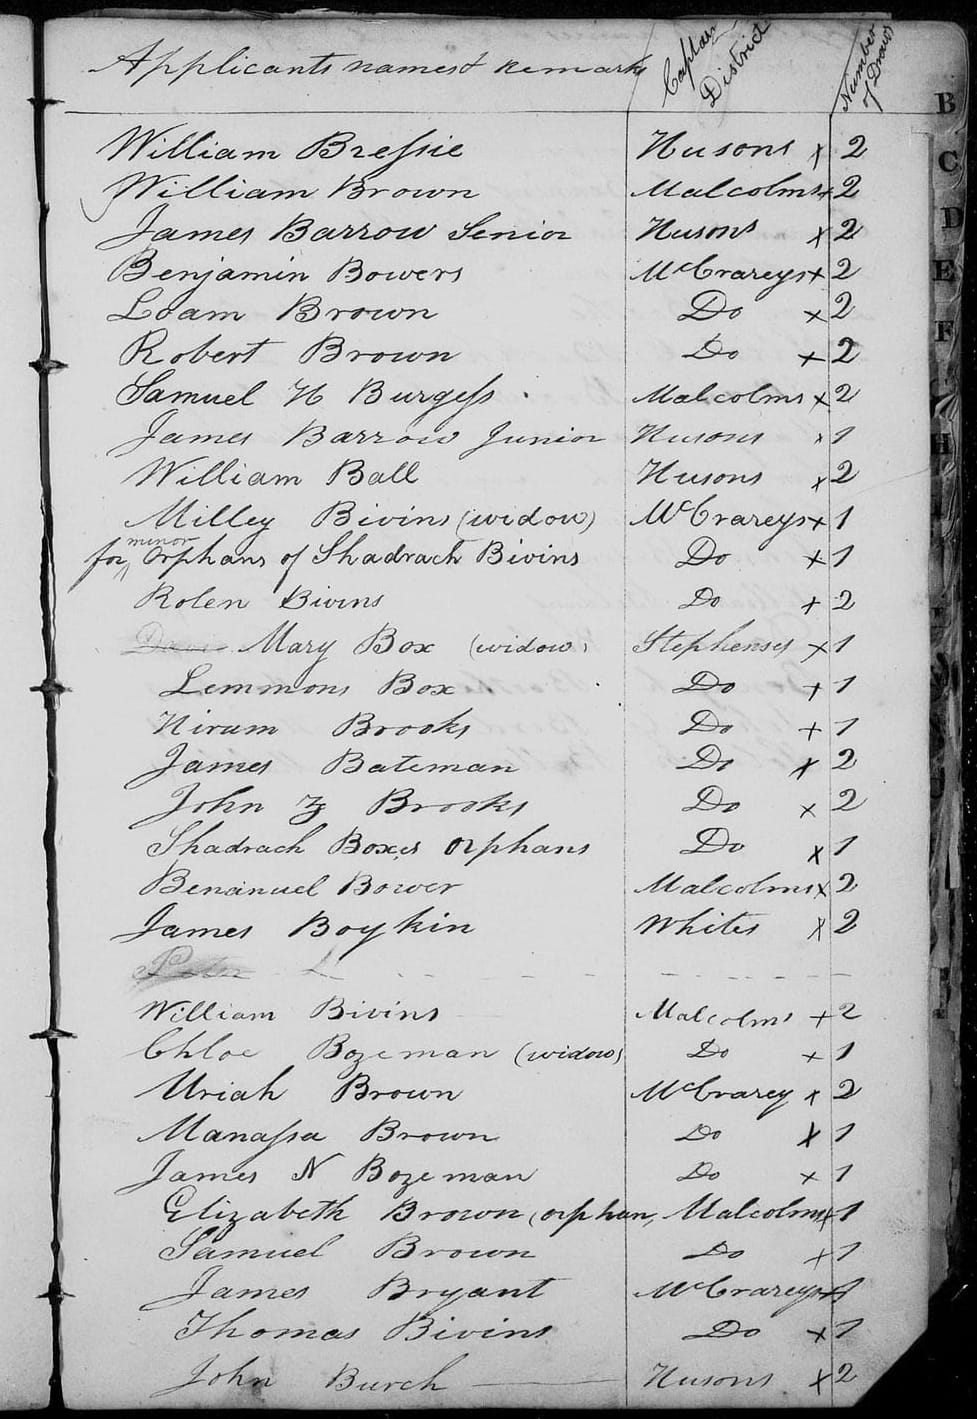 Applicants names & remarks Captain District Number of Draws
William Bressie Husons x 2
William Brown Malcolms x 2
James Barrow Senior Husons x 2
Benjamin Bowers McCrareys x 2
Loam Brown Do x 2
Robert Brown Do x 2
Samuel H Burgess Malcolms x 2
James Barrow Junior Husons x 1
William Ball Husons x 2
Milley Bivins (widow) McCrareys x 1
for minor Orphans of Shadrach Bivins Do x 1
Rolen Bivins Do x 2
Mary Box (widow) Stephenses x 1
Lemmons Box Do x 1
Hiram Brooks Do x 1
James Bateman Do x 2
John Brooks Do x 2
Shadrach Boxes Orphans Do x 1
Benanuel Bower Malcolms x 2
James Boykin Whites x 2
William Bivins Malcolms x 2
Chloe Bozeman (widow) Do x 1
Uriah Brown McCrarey x 2
Manassa Brown Do x 1
James N Bozeman Do x 1
Elizabeth Brown (orphan, Malcolms x 1
Samuel Brown Do x 1
James Bryant McCrareys x 1
Thomas Bivins Do x 1
John Burch Husons x 2
B
C
D
E
F
H